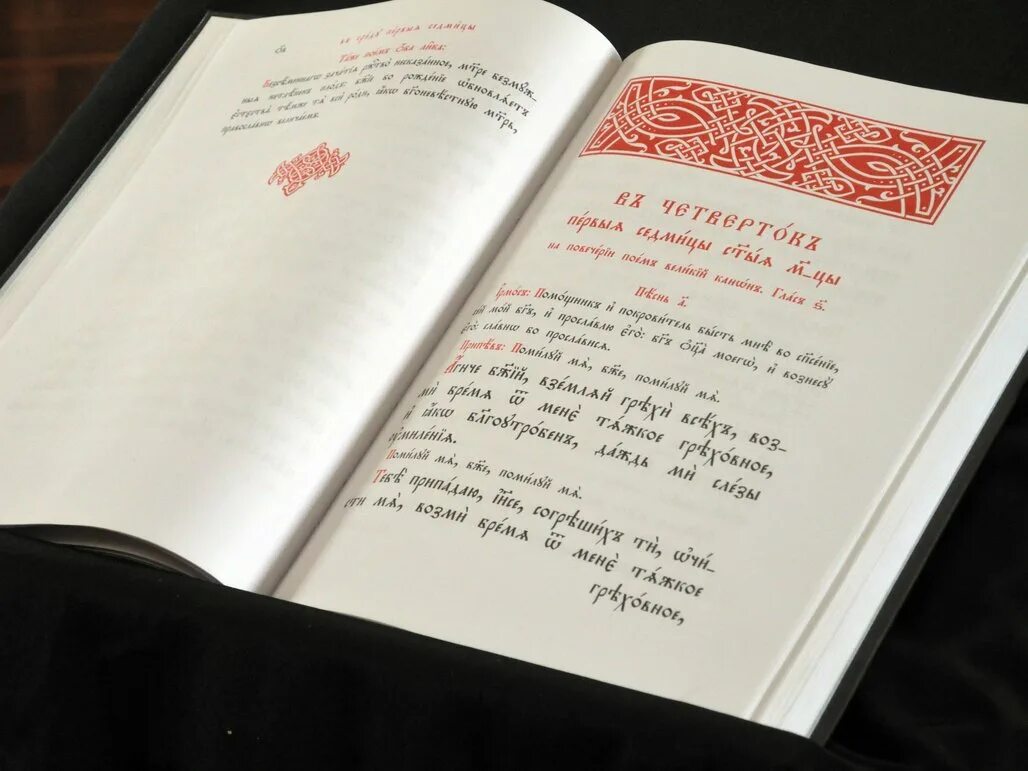 в̾ сре́дꙋ пе́рвыѧ седми́цы
Та́же пое́мъ ѻ҆́ба ли́ка:
Безсѣ́меннагѡ зача́тїѧ ржⷭ҇тво̀ несказа́нное, мт҃ре безмꙋ́ж-
ныѧ нетлѣ́ненъ пло́дъ: бж҃їе бо рожде́нїе ѡ҆бновлѧ́етъ
є҆стєства̀. тѣ́мже тѧ̀ всѝ ро́ди, ꙗ҆́кѡ бг҃оневѣ́стнꙋю мт҃рь,
правосла́внѡ велича́емъ.
Въ четверто́къ
пе́рвыѧ седми́цы ст҃ы́ѧ м҃-цы
на повече́рїи пое́мъ вели́кїй канѡ́нъ. Гла́съ ѕ҃.
Пѣ́снь а҃.
І҆рмо́съ: Помо́щникъ и҆ покрови́тель бы́сть мнѣ̀ во спⷭ҇е́нїе,
се́й мо́й бг҃ъ, и҆ просла́влю є҆го̀: бг҃ъ ѻ҆ц҃а̀ моегѡ̀, и҆ вознесꙋ̀
є҆го̀: сла́внѡ бо просла́висѧ.
Припѣ́въ: Поми́лꙋй мѧ̀, бж҃е, поми́лꙋй мѧ̀.
А҆́гнче бж҃їй, взе́млѧй грѣхѝ всѣ́хъ, воз-
мѝ бре́мѧ ѿ менє̀ тѧ́жкое грѣхо́вное,
и҆ ꙗ҆́кѡ бл҃гоꙋтро́бенъ, да́ждь мѝ сле́зы
ᲂу҆миле́нїѧ.
Поми́лꙋй мѧ̀, бж҃е, поми́лꙋй мѧ̀.
Тебѣ̀ припа́даю, і҆и҃се, согрѣши́хъ тѝ, ѡ҆чи́-
сти мѧ̀, возмѝ бре́мѧ ѿ менє̀ тѧ́жкое
грѣхо́вное,